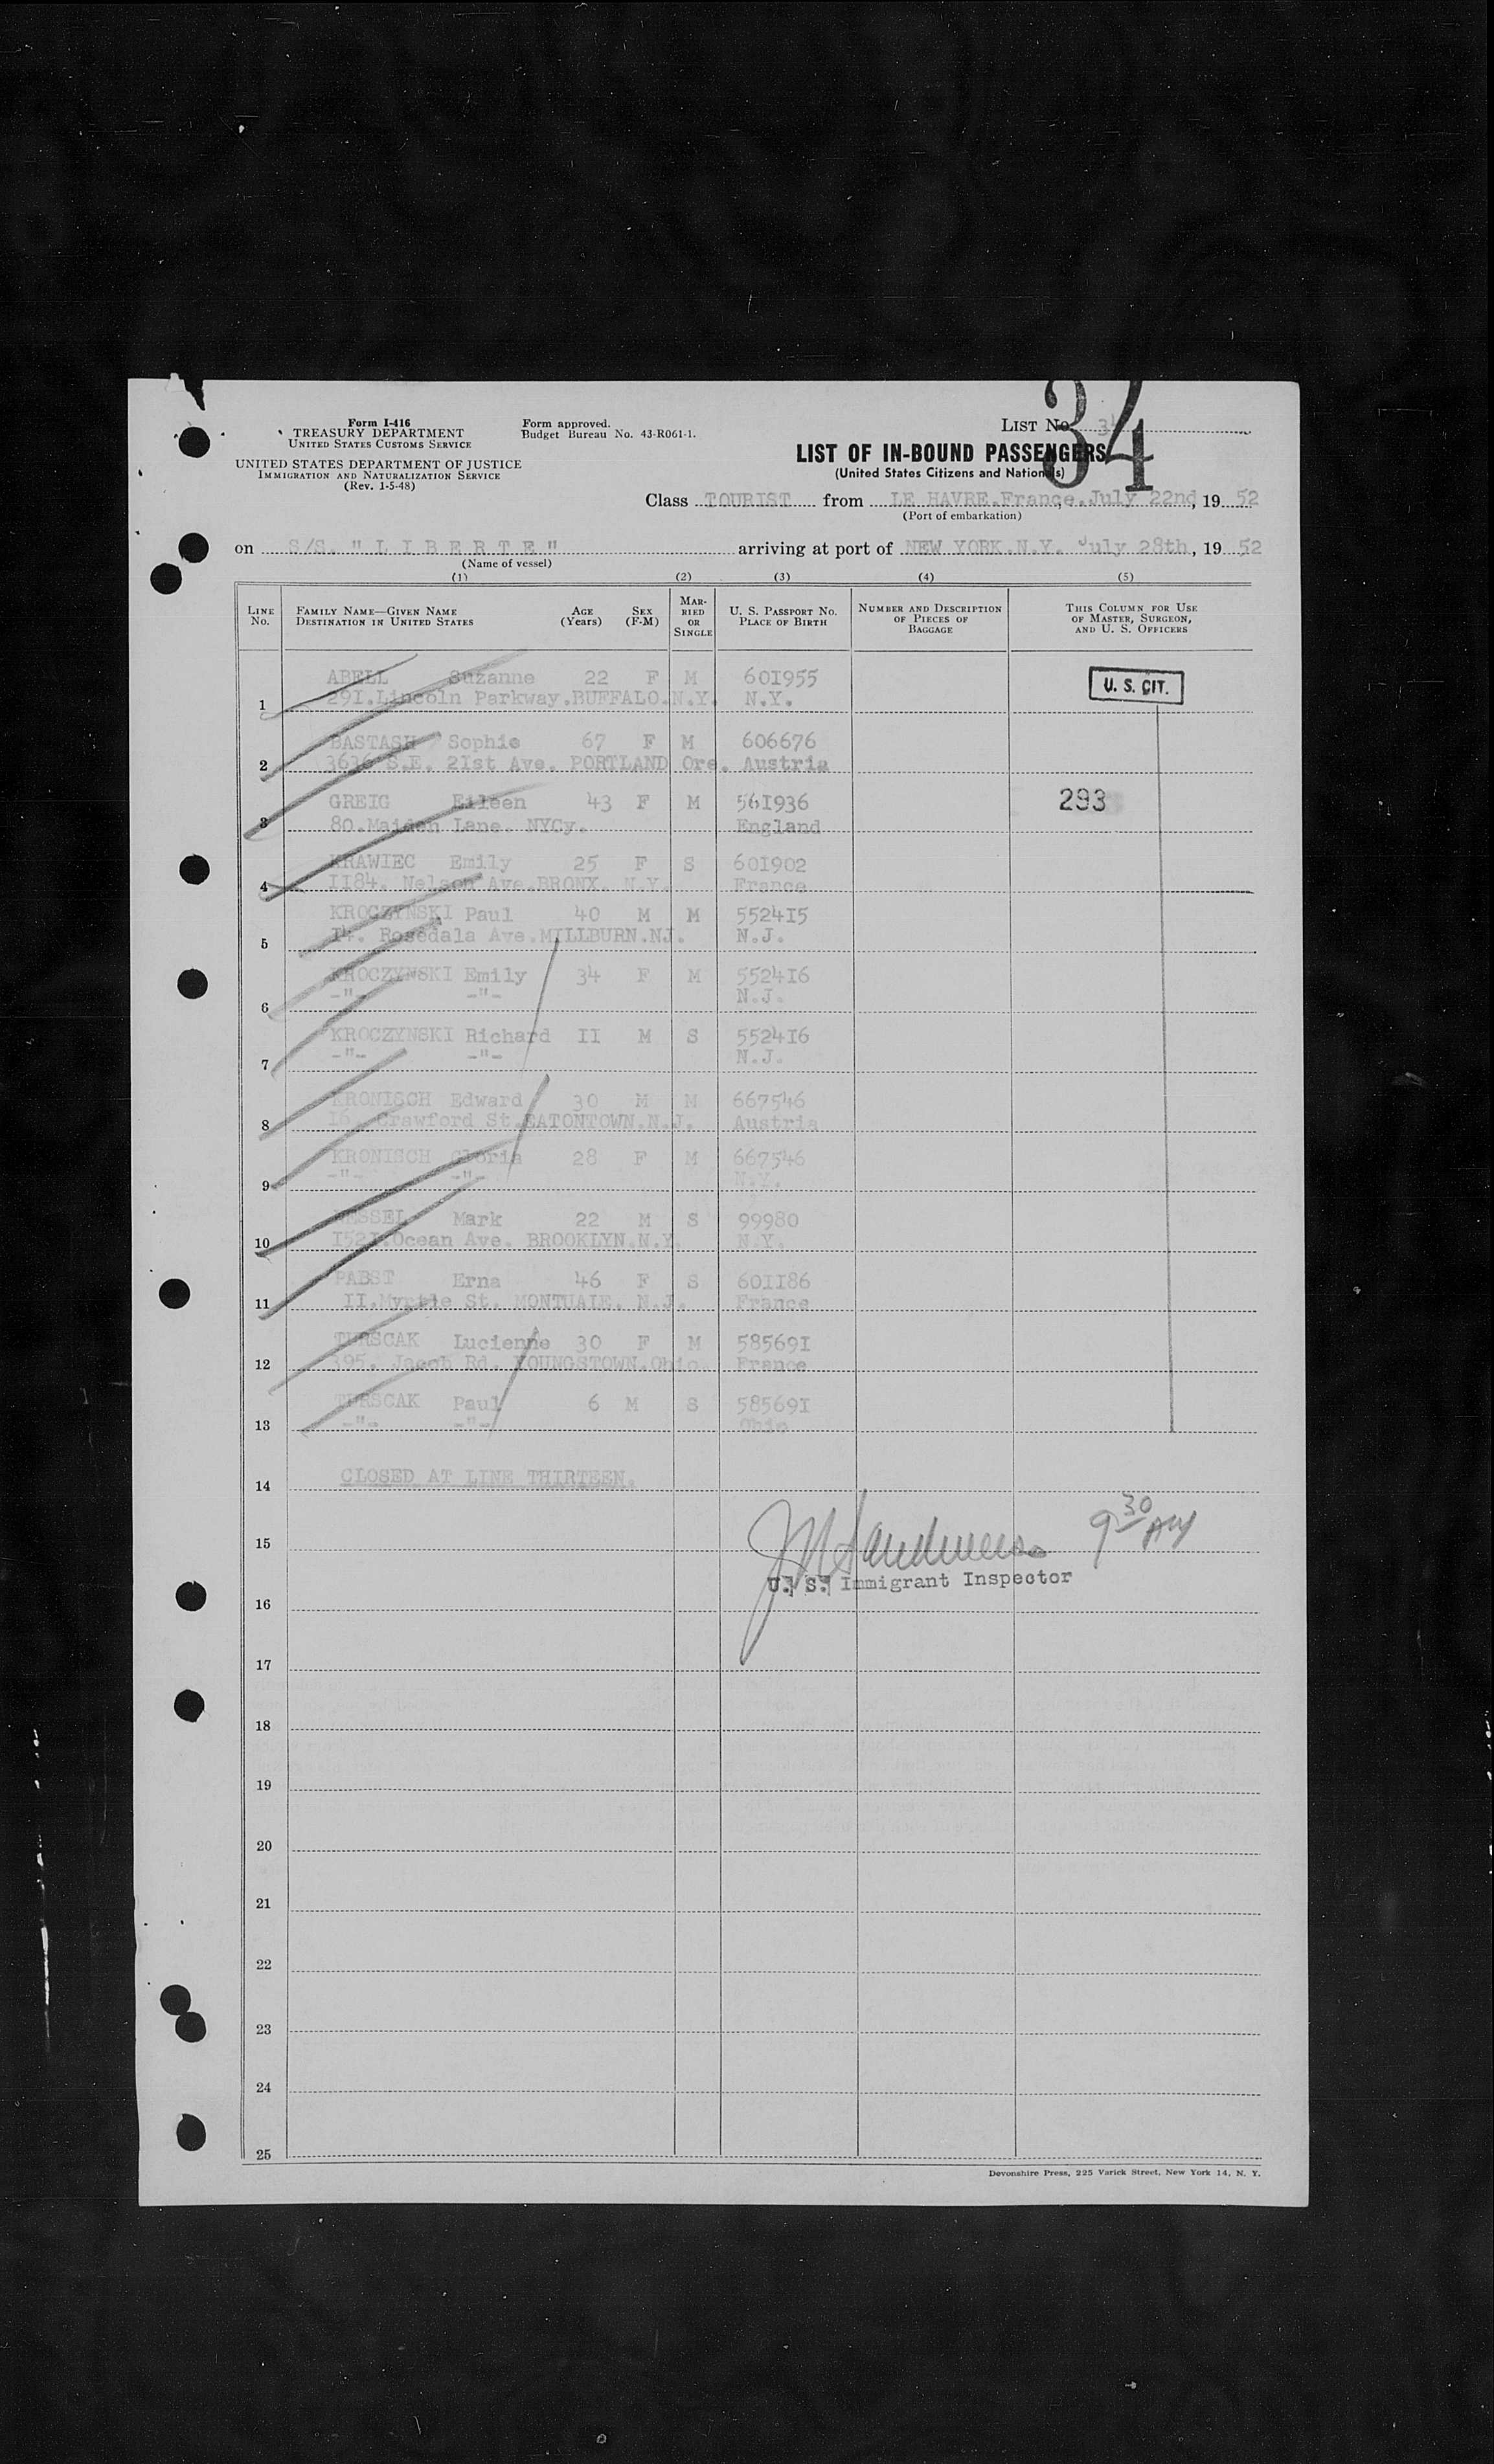 Form I-416
TREASURY DEPARTMENT
UNITED STATES CUSTOMS SERVICE
UNITED STATES DEPARTMENT OF JUSTICE
IMMIGRATION AND NATURALIZATION SERVICE
(Rev. 1-5-48)
Form approved.
Budget Bureau No. 43-R061-1.
LIST NO. 34
34
LIST OF IN-BOUND PASSENGERS
(United States Citizens and Nationals)
Class TOURIST from LE HAVRE.France,.July 22nd, 19 52
(Port of embarkation)
on S/S. "L I B E R T E" arriving at port of NEW YORK.N.Y. July 28th, 19 52
(Name of vessel)
(1) (2) (3) (4) (5)
LINE NO. FAMILY NAME—GIVEN NAME DESTINATION IN UNITED STATES AGE (Years) SEX (F-M) MARRIED OR SINGLE U. S. PASSPORT NO. PLACE OF BIRTH NUMBER AND DESCRIPTION OF PIECES OF BAGGAGE THIS COLUMN FOR USE OF MASTER, SURGEON, AND U. S. OFFICERS
ABELL Suzanne 22 F M 601955 U. S. CIT.
1 291.Lincoln Parkway.BUFFALO.N.Y. N.Y.
BASTASH Sophie 67 F M 606676
2 3636 S.E. 21st Ave. PORTLAND Ore. Austria
GREIG Eileen 43 F M 561936 293
3 80.Maiden Lane. NYCy. England
KRAWIEC Emily 25 F S 601902
4 1184. Nelson Ave.BRONX. N.Y. France
KROCZYNSKI Paul 40 M M 552415
5 14. Rosedala Ave.MILLBURN.NJ. N.J.
KROCZYNSKI Emily 34 F M 552416
6 -"- -"- N.J.
KROCZYNSKI Richard II M S 552416
7 -"- -"- N.J.
KRONISCH Edward 30 M M 667546
8 16. Crawford St.EATONTOWN.N.J. Austria
KRONISCH Gloria 28 F M 667546
9 -"- -"- N.Y.
Mark 22 M S 99980
10 1521.Ocean Ave. BROOKLYN.N.Y. N.Y.
PABST Erna 46 F S 601186
11 II.Myrtle St. MONTUALE. N.J. France
TURSCAK Lucienne 30 F M 585691
12 395. Jacob Rd. YOUNGSTOWN.Ohio. France
TURSCAK Paul 6 M S 585691
13 -"- -"- Ohio
14 CLOSED AT LINE THIRTEEN.
15 9 30 AM
U. S. Immigrant Inspector
16
17
18
19
20
21
22
23
24
25
Devonshire Press, 225 Varick Street, New York 14, N. Y.